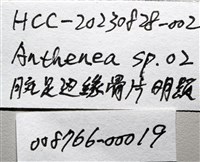 HCC-20230828-002
Anthenea sp.02
腕足边缘骨片明显
008766-00019